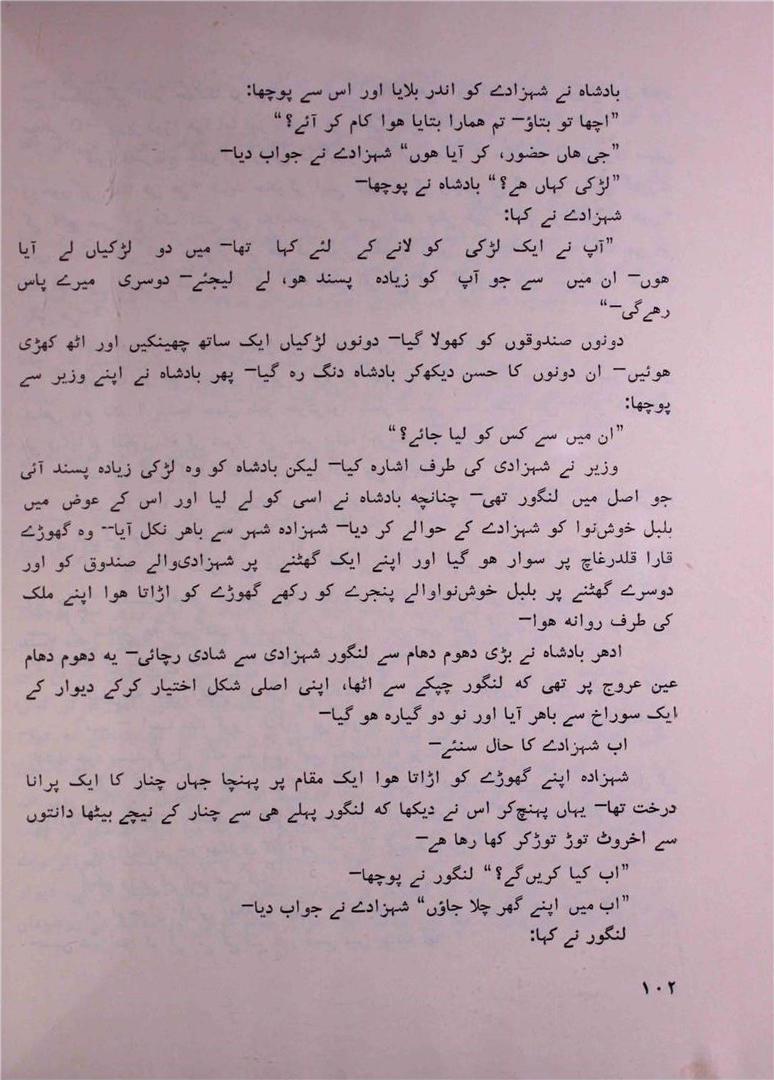 بادشاہ نے شہزادے کو اندر بلایا اور اس سے پوچھا:
”اچھا تو بتاؤ— تم ھمارا بتایا ھوا کام کر آئے؟“
”جی ھاں حضور، کر آیا ھوں“ شہزادے نے جواب دیا—
”لڑکی کہاں ھے؟“ بادشاہ نے پوچھا—
شہزادے نے کہا:
”آپ نے ایک لڑکی کو لانے کے لئے کہا تھا— میں دو لڑکیاں لے آیا
ھوں— ان میں سے جو آپ کو زیادہ پسند ھو، لے لیجئے— دوسری میرے پاس
رھےگی—“
دونوں صندوقوں کو کھولا گیا— دونوں لڑکیاں ایک ساتھ چھینکیں اور اٹھ کھڑی
ھوئیں— ان دونوں کا حسن دیکھ‌کر بادشاہ دنگ رہ گیا— پھر بادشاہ نے اپنے وزیر سے
پوچھا:
”ان میں سے کس کو لیا جائے؟“
وزیر نے شہزادی کی طرف اشارہ کیا— لیکن بادشاہ کو وہ لڑکی زیادہ پسند آئی
جو اصل میں لنگور تھی— چنانچہ بادشاہ نے اسی کو لے لیا اور اس کے عوض میں
بلبل خوش‌نوا کو شہزادے کے حوالے کر دیا— شہزادہ شہر سے باھر نکل آیا-- وہ گھوڑے
قارا قلدرغاچ پر سوار ھو گیا اور اپنے ایک گھٹنے پر شہزادی‌والے صندوق کو اور
دوسرے گھٹنے پر بلبل خوش‌نواوالے پنجرے کو رکھے گھوڑے کو اڑاتا ھوا اپنے ملک
کی طرف روانہ ھوا—
ادھر بادشاہ نے بڑی دھوم دھام سے لنگور شہزادی سے شادی رچائی— یہ دھوم دھام
عین عروج پر تھی کہ لنگور چپکے سے اٹھا، اپنی اصلی شکل اختیار کرکے دیوار کے
ایک سوراخ سے باھر آیا اور نو دو گیارہ ھو گیا—
اب شہزادے کا حال سنئے—
شہزادہ اپنے گھوڑے کو اڑاتا ھوا ایک مقام پر پہنچا جہاں چنار کا ایک پرانا
درخت تھا— یہاں پہنچ‌کر اس نے دیکھا کہ لنگور پہلے ھی سے چنار کے نیچے بیٹھا دانتوں
سے اخروٹ توڑ توڑکر کھا رھا ھے—
”اب کیا کریں‌گے؟“ لنگور نے پوچھا—
”اب میں اپنے گھر چلا جاؤں“ شہزادے نے جواب دیا—
لنگور نے کہا:
۱۰۲